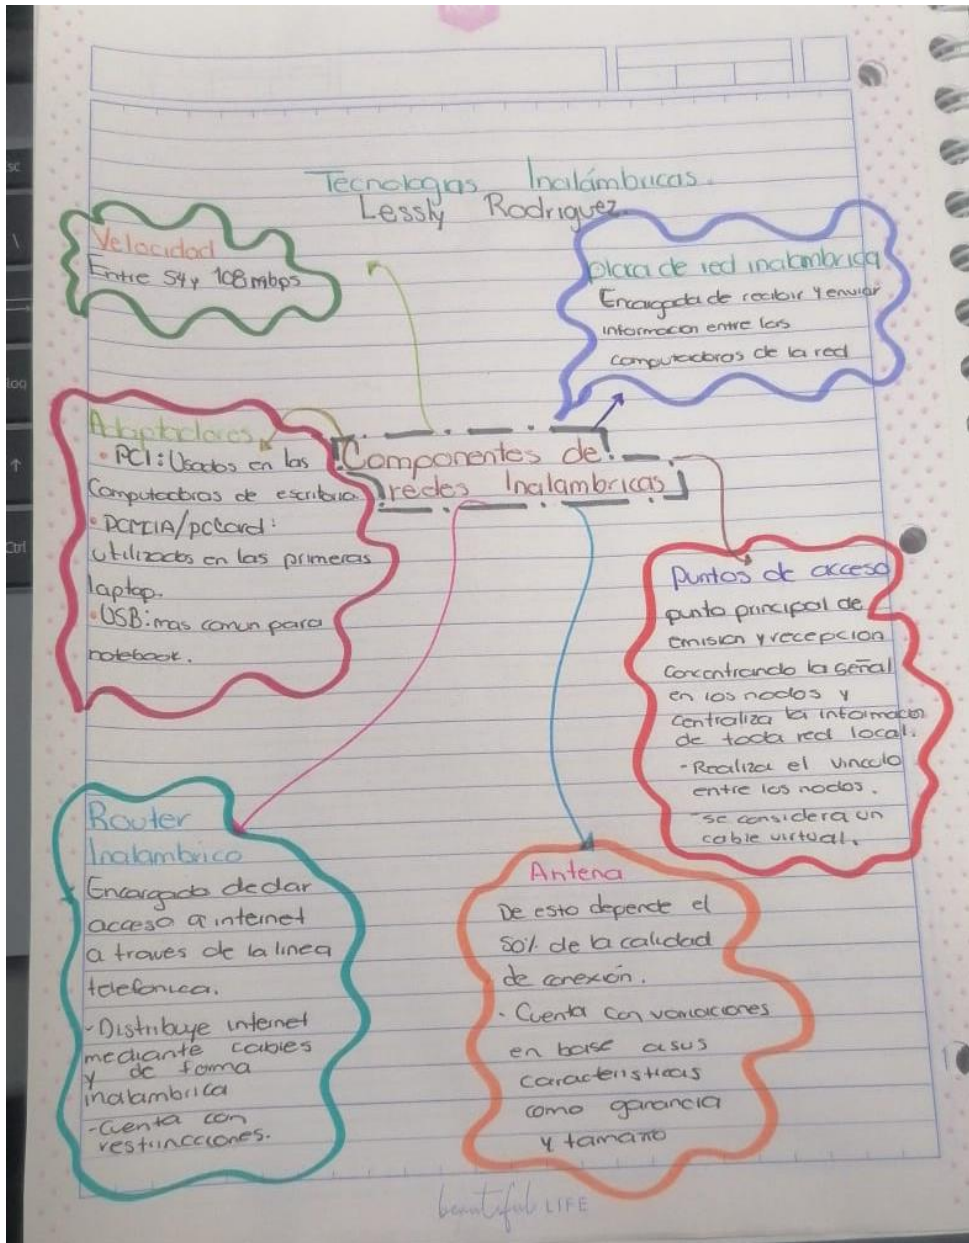 Tecnologias Inalámbricas.
Lessly Rodriguez.
Velocidad
Entre 54 y 108 mbps
placa de red inalambrica
Encargada de recibir y enviar
informacion entre las
computadoras de la red
Componentes de
redes Inalambricas
Adaptadores
• PCI: Usados en las
Computadoras de escritorio
• PCMCIA/pccard:
utilizados en las primeras
laptop.
• USB: mas comun para
notebook.
Puntos de acceso
punto principal de
emision y recepcion
concentrando la señal
en los nodos y
centraliza la informacion
de toda red local.
- Realiza el vinculo
entre los nodos.
- se considera un
cable virtual.
Router
Inalambrico
Encargado de dar
acceso a internet
a traves de la linea
telefonica.
- Distribuye internet
mediante cables
y de forma
inalambrica
- Cuenta con
restrincciones.
Antena
De esto depende el
50% de la calidad
de conexión.
- Cuenta con variaciones
en base a sus
caracteristicas
como ganancia
y tamaño
beautiful LIFE
sc
\
loq
↑
Ctrl